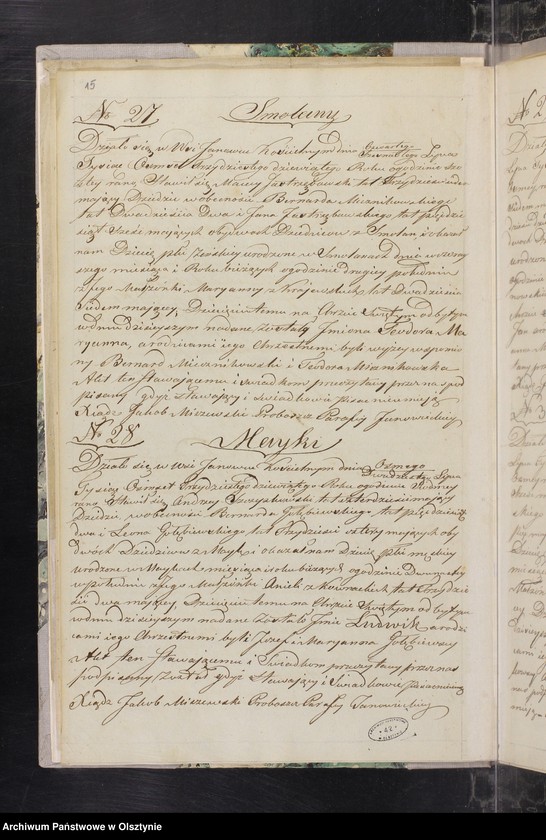 15
No 27 Smolany
Działo się w Wsi Janowie Kościelnym dnia Czwartego
Szesnastego Lipca
Tysiąc Ośmset Trzydziestego dziewiątego Roku o godzinie
rano Stawił się Maciej Jastrzębowski lat Trzydzieści
mający Dziedzic w obecności Bernarda Miecznikowskiego
lat Dwadzieścia Dwa i Jana Jastrzębowskiego, lat pięćdzie
siąt Sześć mających obydwóch Dziedziców z Smolan, i okazał
nam Dziecię płci żeńskiej urodzone w Smolanach dnia
szego miesiąca i Roku bieżących o godzinie drugiej popołudniu
z jego Małżonki Maryanny z Krajewskich lat Dwadzieścia
siedem mającej, Dziecięciu temu na Chrzcie Świętym odbytym
w dniu dzisiejszym nadane zostały Imiona Teodora Ma
ryanna, a rodzicami jego Chrzestnemi byli wyżej wspomnio
ny Bernard Miecznikowski i Teodora Miecznikowska
Akt ten stawającemu i świadkom przeczytany przez nas pod
pisany gdyż stawający i świadkowie pisać nieumieją
Xiądz Jakób Miszewski Proboszcz Parafij Janowieckiej
No 28 Mayki
Działo się w Wsi Janowie Kościelnym dnia Ósmego
Dwudziestego Lipca
Tysiąc Ośmset Trzydziestego dziewiątego Roku o godzinie siódmej
rano Stawił się Andrzej lat czterdzieści mający
Dziedzic, w obecności Bernarda Gołębiewskiego lat pięćdziesiąt
dwa i Leona Gołębiewskiego lat Trzydzieści cztery mających oby
dwóch Dziedziców z Mayk i okazał nam Dziecię płci męskiej
urodzone w Maykach miesiąca i roku bieżących o godzinie Dwunastej
w południe z jego Małżonki Anieli z lat Trzydzie
ści dwa mającej, Dziecięciu temu na Chrzcie Świętym odbytym
w dniu dzisiejszym nadane zostało Imie Ludwik a rodzi
cami jego Chrzestnemi byli Józef i Maryanna Gołębiewscy
Akt ten stawającemu i Świadkom przeczytany przez nas
podpisany został gdyż Stawający i Świadkowie pisać nieumieją
Xiądz Jakób Miszewski Proboszcz Parafij Janowieckiej
Archiwum Państwowe w Olsztynie